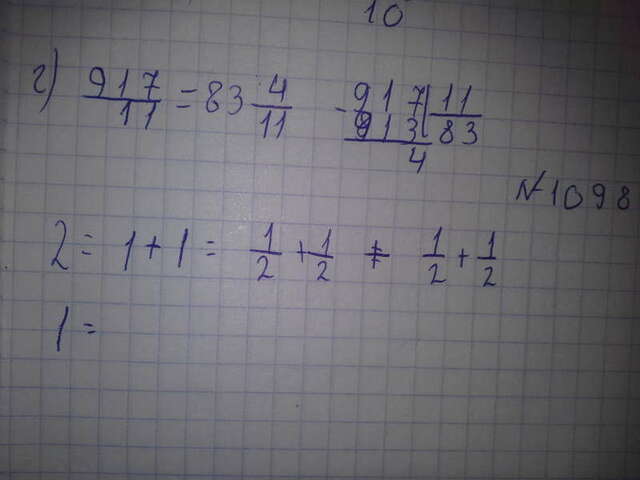 10
г) 917/11 = 83 4/11   - 917 | 11
913   83
4
№1098
2 = 1 + 1 = 1/2 + 1/2 + 1/2 + 1/2
1 =